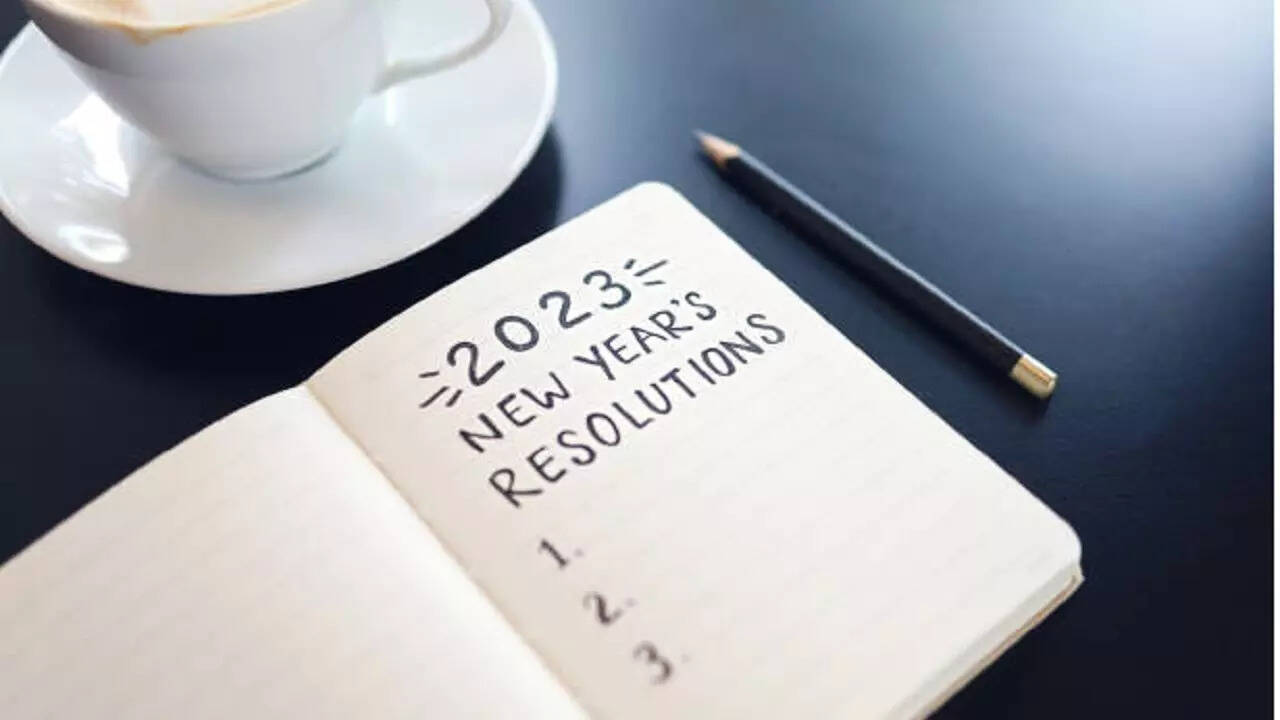 2023
NEW YEAR'S
RESOLUTIONS
1.
2.
3.